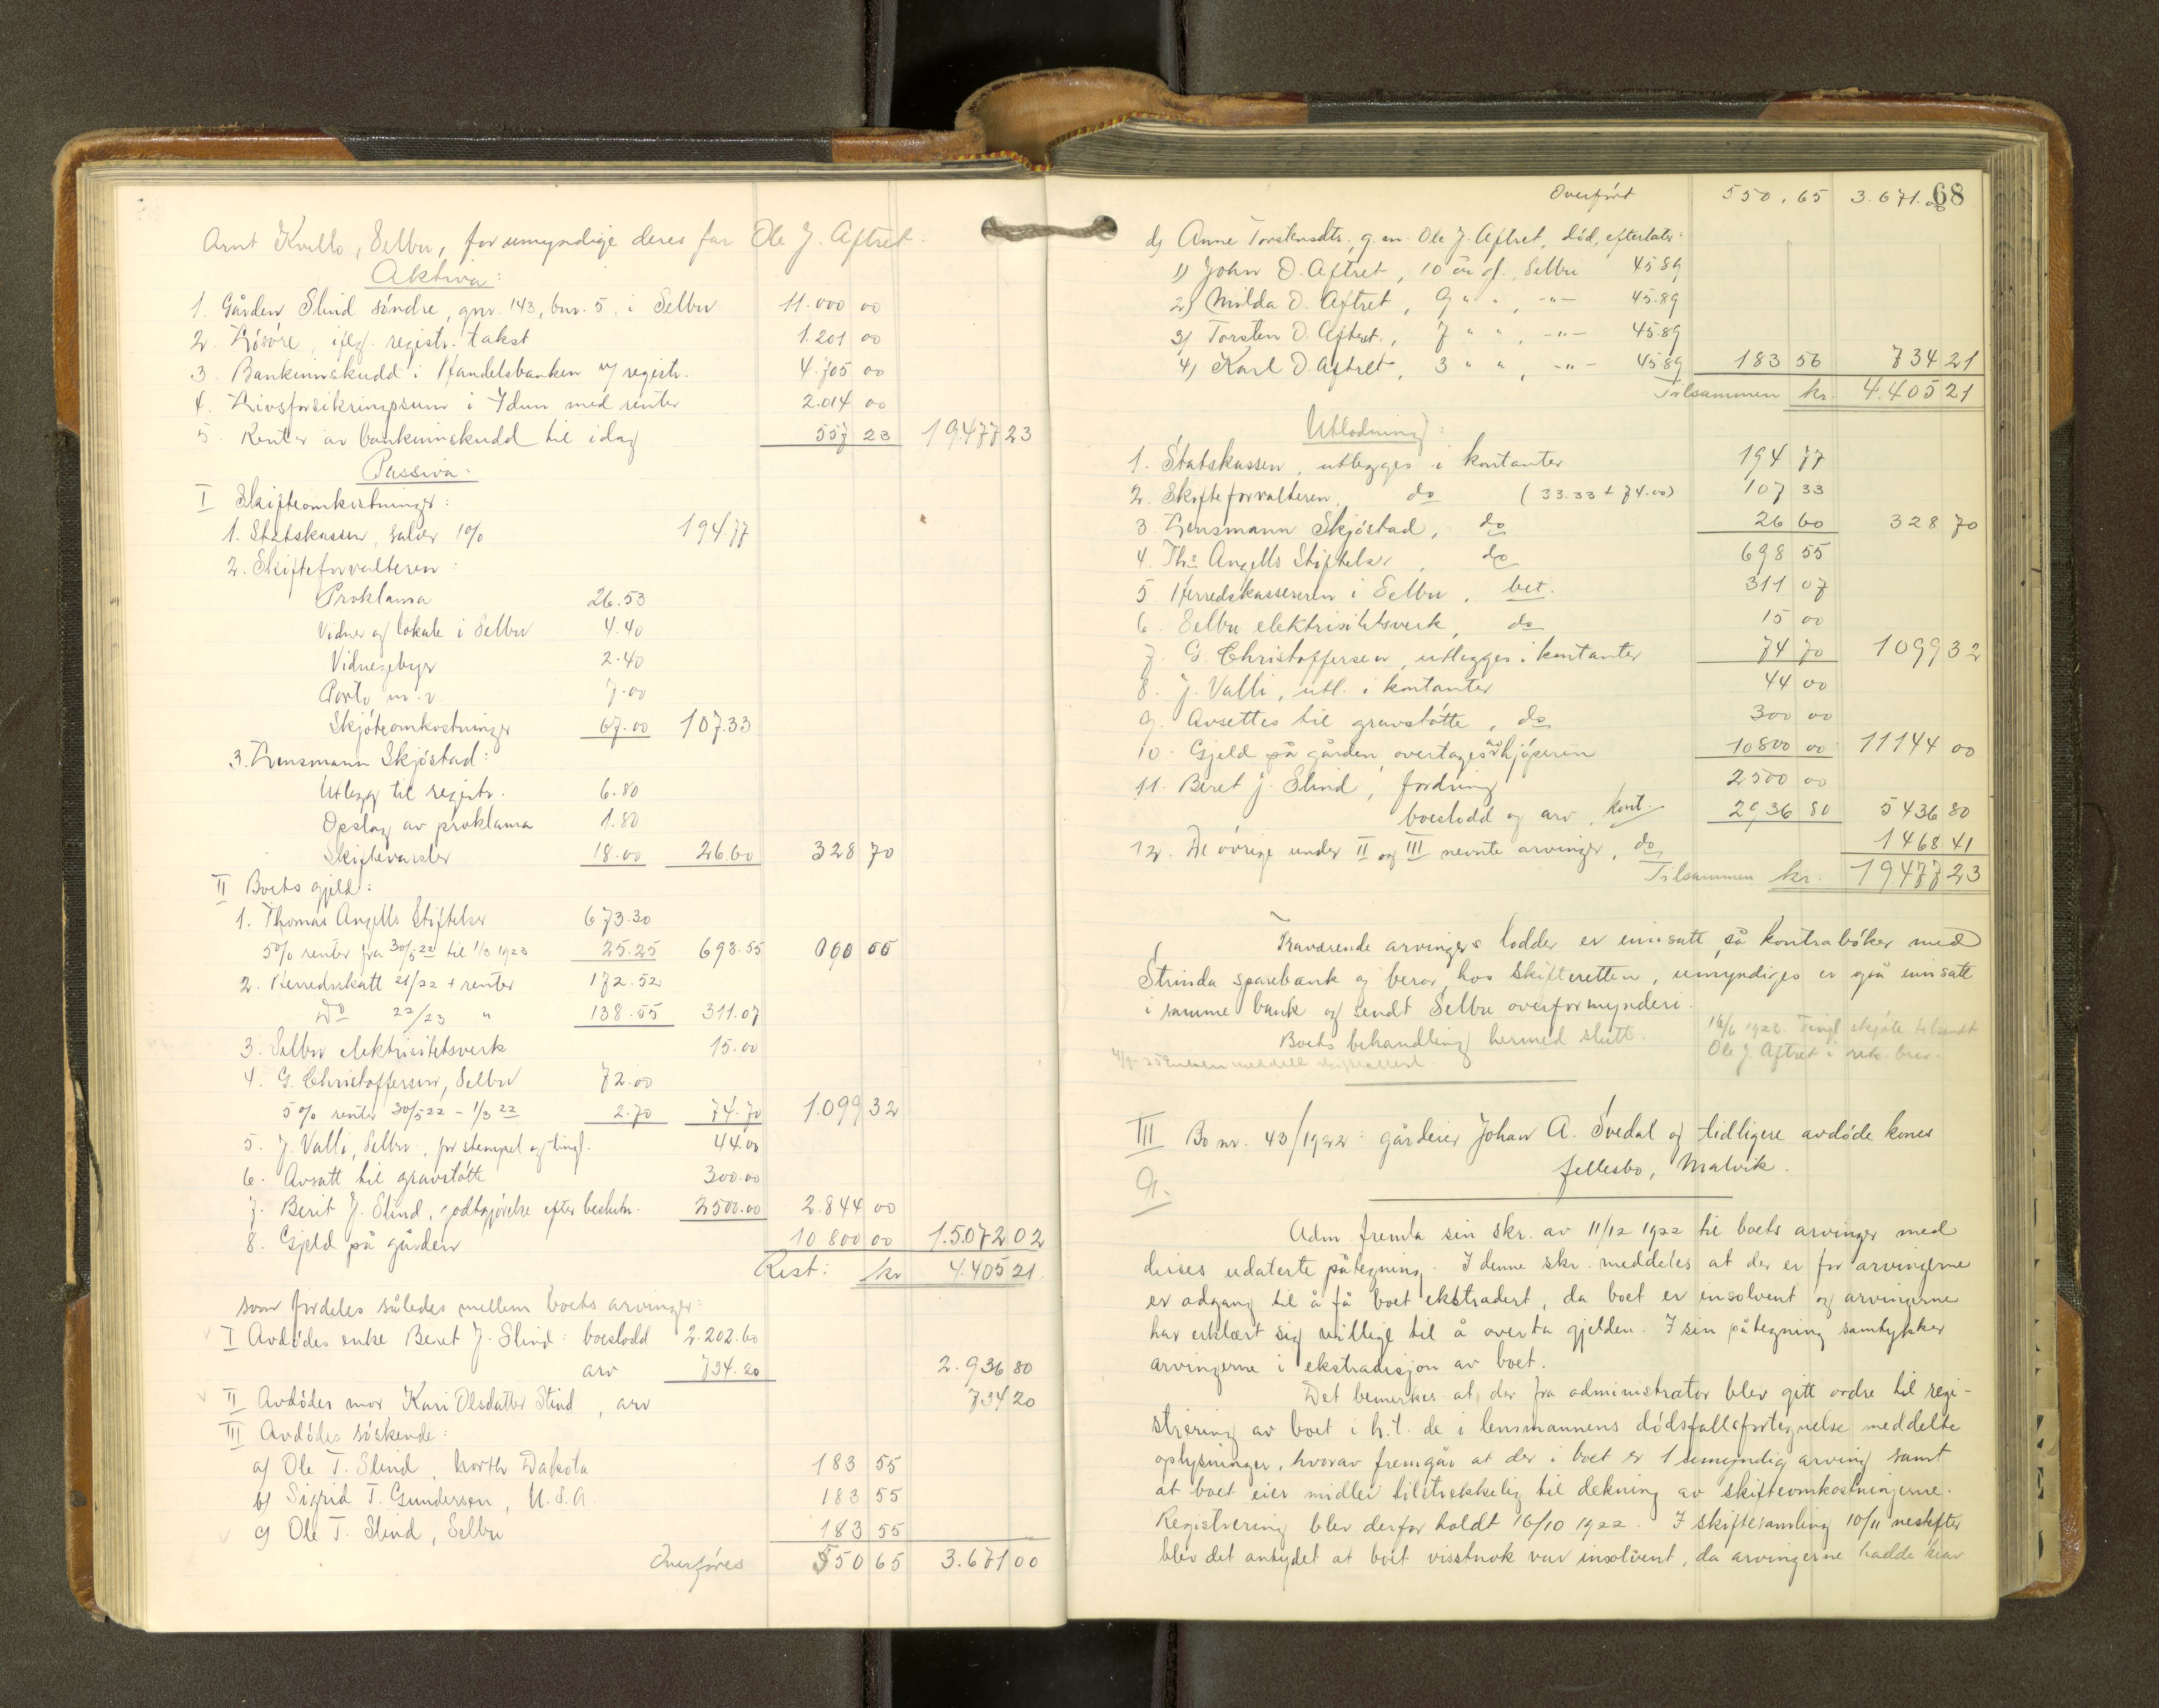 Arnt Kvello, Selbu, for umyndige deres far Ole J. Aftret.
Aktiva:
1. Gården Slind söndre, gnr. 143, bnr. 5, i Selbu 11.000 00
2. Lösöre, iflg. registr. takst 1.201 00
3. Bankinnskudd i Handelsbanken v/ registr. 4.705 00
4. Livsforsikringssum i Idun med renter 2.014 00
5. Renter av bankinnskudd til idag 557 23 19.477 23
Passiva:
I Skifteomkostninger:
1. Statskassen, salær 1% 194.77
2. Skifteforvalteren:
Proklama 26.53
Vidner og lokale i Selbu 4.40
Vidnegebyr 2.40
Porto m.v. 7.00
Skjöteomkostninger 67.00 107.33
3. Lensmann Skjöstad:
Utlegg til registr. 6.80
Opslag av proklama 1.80
Skiftevarsler 18.00 26.60 328 70
II Boets gjeld:
1. Thomas Angells Stiftelser 673.30
5% renter fra 30/5 22 til 1/3 1923 25.25 698.55
2. Herredsskatt 21/22 + renter 172.52
Do 22/23 " 138.55 311.07
3. Selbu elektricitetsverk 15.00
4. G. Christoffersen, Selbu 72.00
5% renter 30/5 22 - 1/3 22 2.70 74.70 1.099 32
5. J. Valli, Selbu, for stempel og tingl. 44.00
6. Avsatt til gravstötte 300.00
7. Berit J. Slind, godtgjörelse efter beslutn. 2500.00 2.844 00
8. Gjeld på gården 10 800 00 15.072 02
Rest: kr 4.405 21
som fordeles således mellem boets arvinger:
I Avdödes enke Beret J. Slind: boeslodd 2.202.60
arv 734.20 2.936 80
II Avdödes mor Kari Olsdatter Slind, arv 734 20
III Avdödes söskende:
a) Ole T. Slind, North Dakota 183 55
b) Sigrid T. Gundersen, U.S.A. 183 55
c) Ole T. Slind, Selbu 183 55
Overföres 550 65 3.671 00
68
Overfört 550.65 3.671.00
d) Anne Torstensdtr. g.m. Ole J. Aftret, död, efterlater:
1) John O. Aftret, 10 år gl., Selbu 45.89
2) Milda O. Aftret, 9 " " , -"- 45.89
3) Torsten O. Aftret, 7 " " , -"- 45.89
4) Karl O. Aftret, 3 " " , -"- 45.89 183 56 734 21
Tilsammen kr. 4.405 21
Utlodning:
1. Statskassen, utlegges i kontanter 194 77
2. Skifteforvalteren, do (33.33 + 74.00) 107 33
3. Lensmann Skjöstad, do 26 60 328 70
4. Ths Angells Stiftelser, do 698 55
5 Herredskassereren i Selbu, bet. 311 07
6. Selbu elektrisitetsverk, do 15 00
7. G. Christoffersen, utlegges i kontanter 74 70 1099 32
8. J. Valli, utl. i kontanter 44 00
9. Avsettes til gravstötte, do 300 00
10. Gjeld på gården, overtages av kjöperen 10800 00 11144 00
11. Beret J. Slind, fordring 2500 00
boeslodd og arv, kont. 2936 80 5436 80
12. De övrige under II og III nevnte arvinger, do 1468 41
Tilsammen kr. 19.477 23
Fraværende arvingers lodder er innsatt på kontraböker med
Strinda sparebank og beror hos skifteretten, umyndiges er også innsatt
i samme bank og sendt Selbu overformynderi.
Boets behandling hermed slutt.
16/6 1923. Tingl. skjöte tilsendt
Ole J. Aftret i rek. brev.
III Bo nr. 43/1922: gårdeier Johan A. Svedal og tidligere avdöde kones
fellesbo, Malvik.
Adm. fremla sin skr. av 11/12 1922 til boets arvinger med
disses udaterte påtegning. I denne skr. meddeles at der er for arvingerne
er adgang til å få boet ekstradert, da boet er insolvent og arvingerne
har erklært sig villige til å overta gjelden. I sin påtegning samtykker
arvingerne i ekstradisjon av boet.
Det bemerkes at der fra administrator blev gitt ordre til regi-
strering av boet i h.t. de i lensmannens dödsfallsfortegnelse meddelte
oplysninger, hvorav fremgår at der i boet er 1 umyndig arving samt
at boet eier midler tilstrekkelig til dekning av skifteomkostningerne.
Registrering blev derfor holdt 16/10 1922. I skiftesamling 10/11 nestefter
blev det antydet at boet visstnok var insolvent, da arvingerne hadde krav